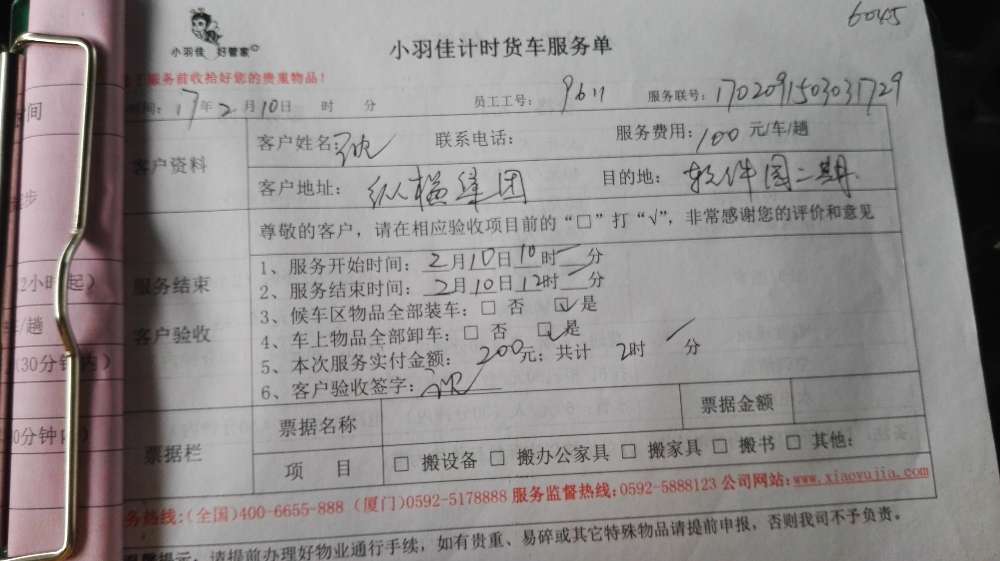 6045
小羽佳 好管家
小羽佳计时货车服务单
服务前收拾好您的贵重物品！
时间：17年2月10日 时 分 员工工号：9611 服务联号：1702091503031729
客户资料
客户姓名：沈 联系电话： 服务费用：100元/车/趟
客户地址：纵横集团 目的地：软件园二期
服务结束
客户验收
尊敬的客户，请在相应验收项目前的“□”打“√”，非常感谢您的评价和意见
1、服务开始时间：2月10日10时 分
2、服务结束时间：2月10日12时 分
3、候车区物品全部装车：□ 否 ☑是
4、车上物品全部卸车：□ 否 ☑是
5、本次服务实付金额：200元；共计 2时 分
6、客户验收签字：沈
票据栏
票据名称 票据金额
项 目 □ 搬设备 □ 搬办公家具 □ 搬家具 □ 搬书 □ 其他：
务热线：(全国)400-6655-888 (厦门)0592-5178888 服务监督热线：0592-5888123 公司网站：www.xiaoyujia.com
提示：请提前办理好物业通行手续，如有贵重、易碎或其它特殊物品请提前申报，否则我司不予负责。
间
步
2小时起)
车/趟
(30分钟内)
0分钟内)